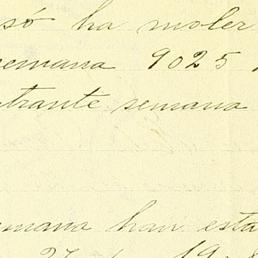 só ha moler
semana 9025
trante semana
mana han esta
27 19